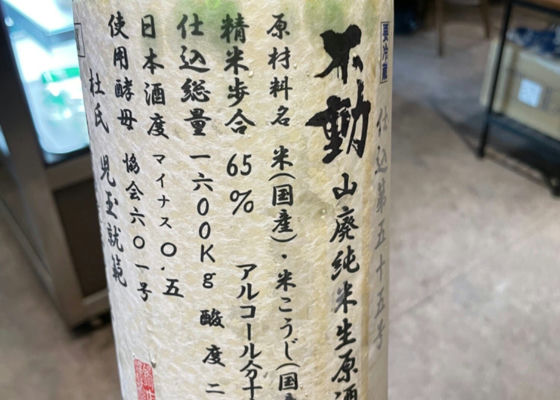 要冷蔵
仕込第五十五号
不動 山廃純米生原酒
原材料名 米(国産)・米こうじ(国産
精米歩合 65% アルコール分十
仕込総量 一六〇〇Kg 酸度 二
日本酒度 マイナス〇.五
使用酵母 協会六〇一号
杜氏 児玉就範